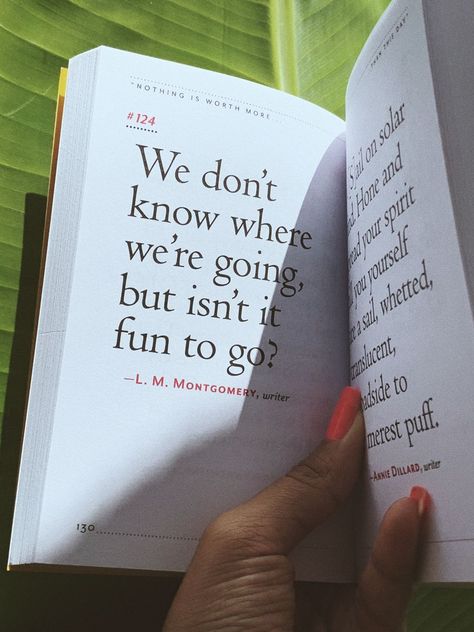 "NOTHING IS WORTH MORE ...
#124
We don't
know where
we're going,
but isn't it
fun to go?
—L. M. MONTGOMERY, writer
130
THAN THIS DAY"
sail on solar
Hone and
your spirit
you yourself
a sail, whetted,
translucent,
to
merest puff.
—ANNIE DILLARD, writer